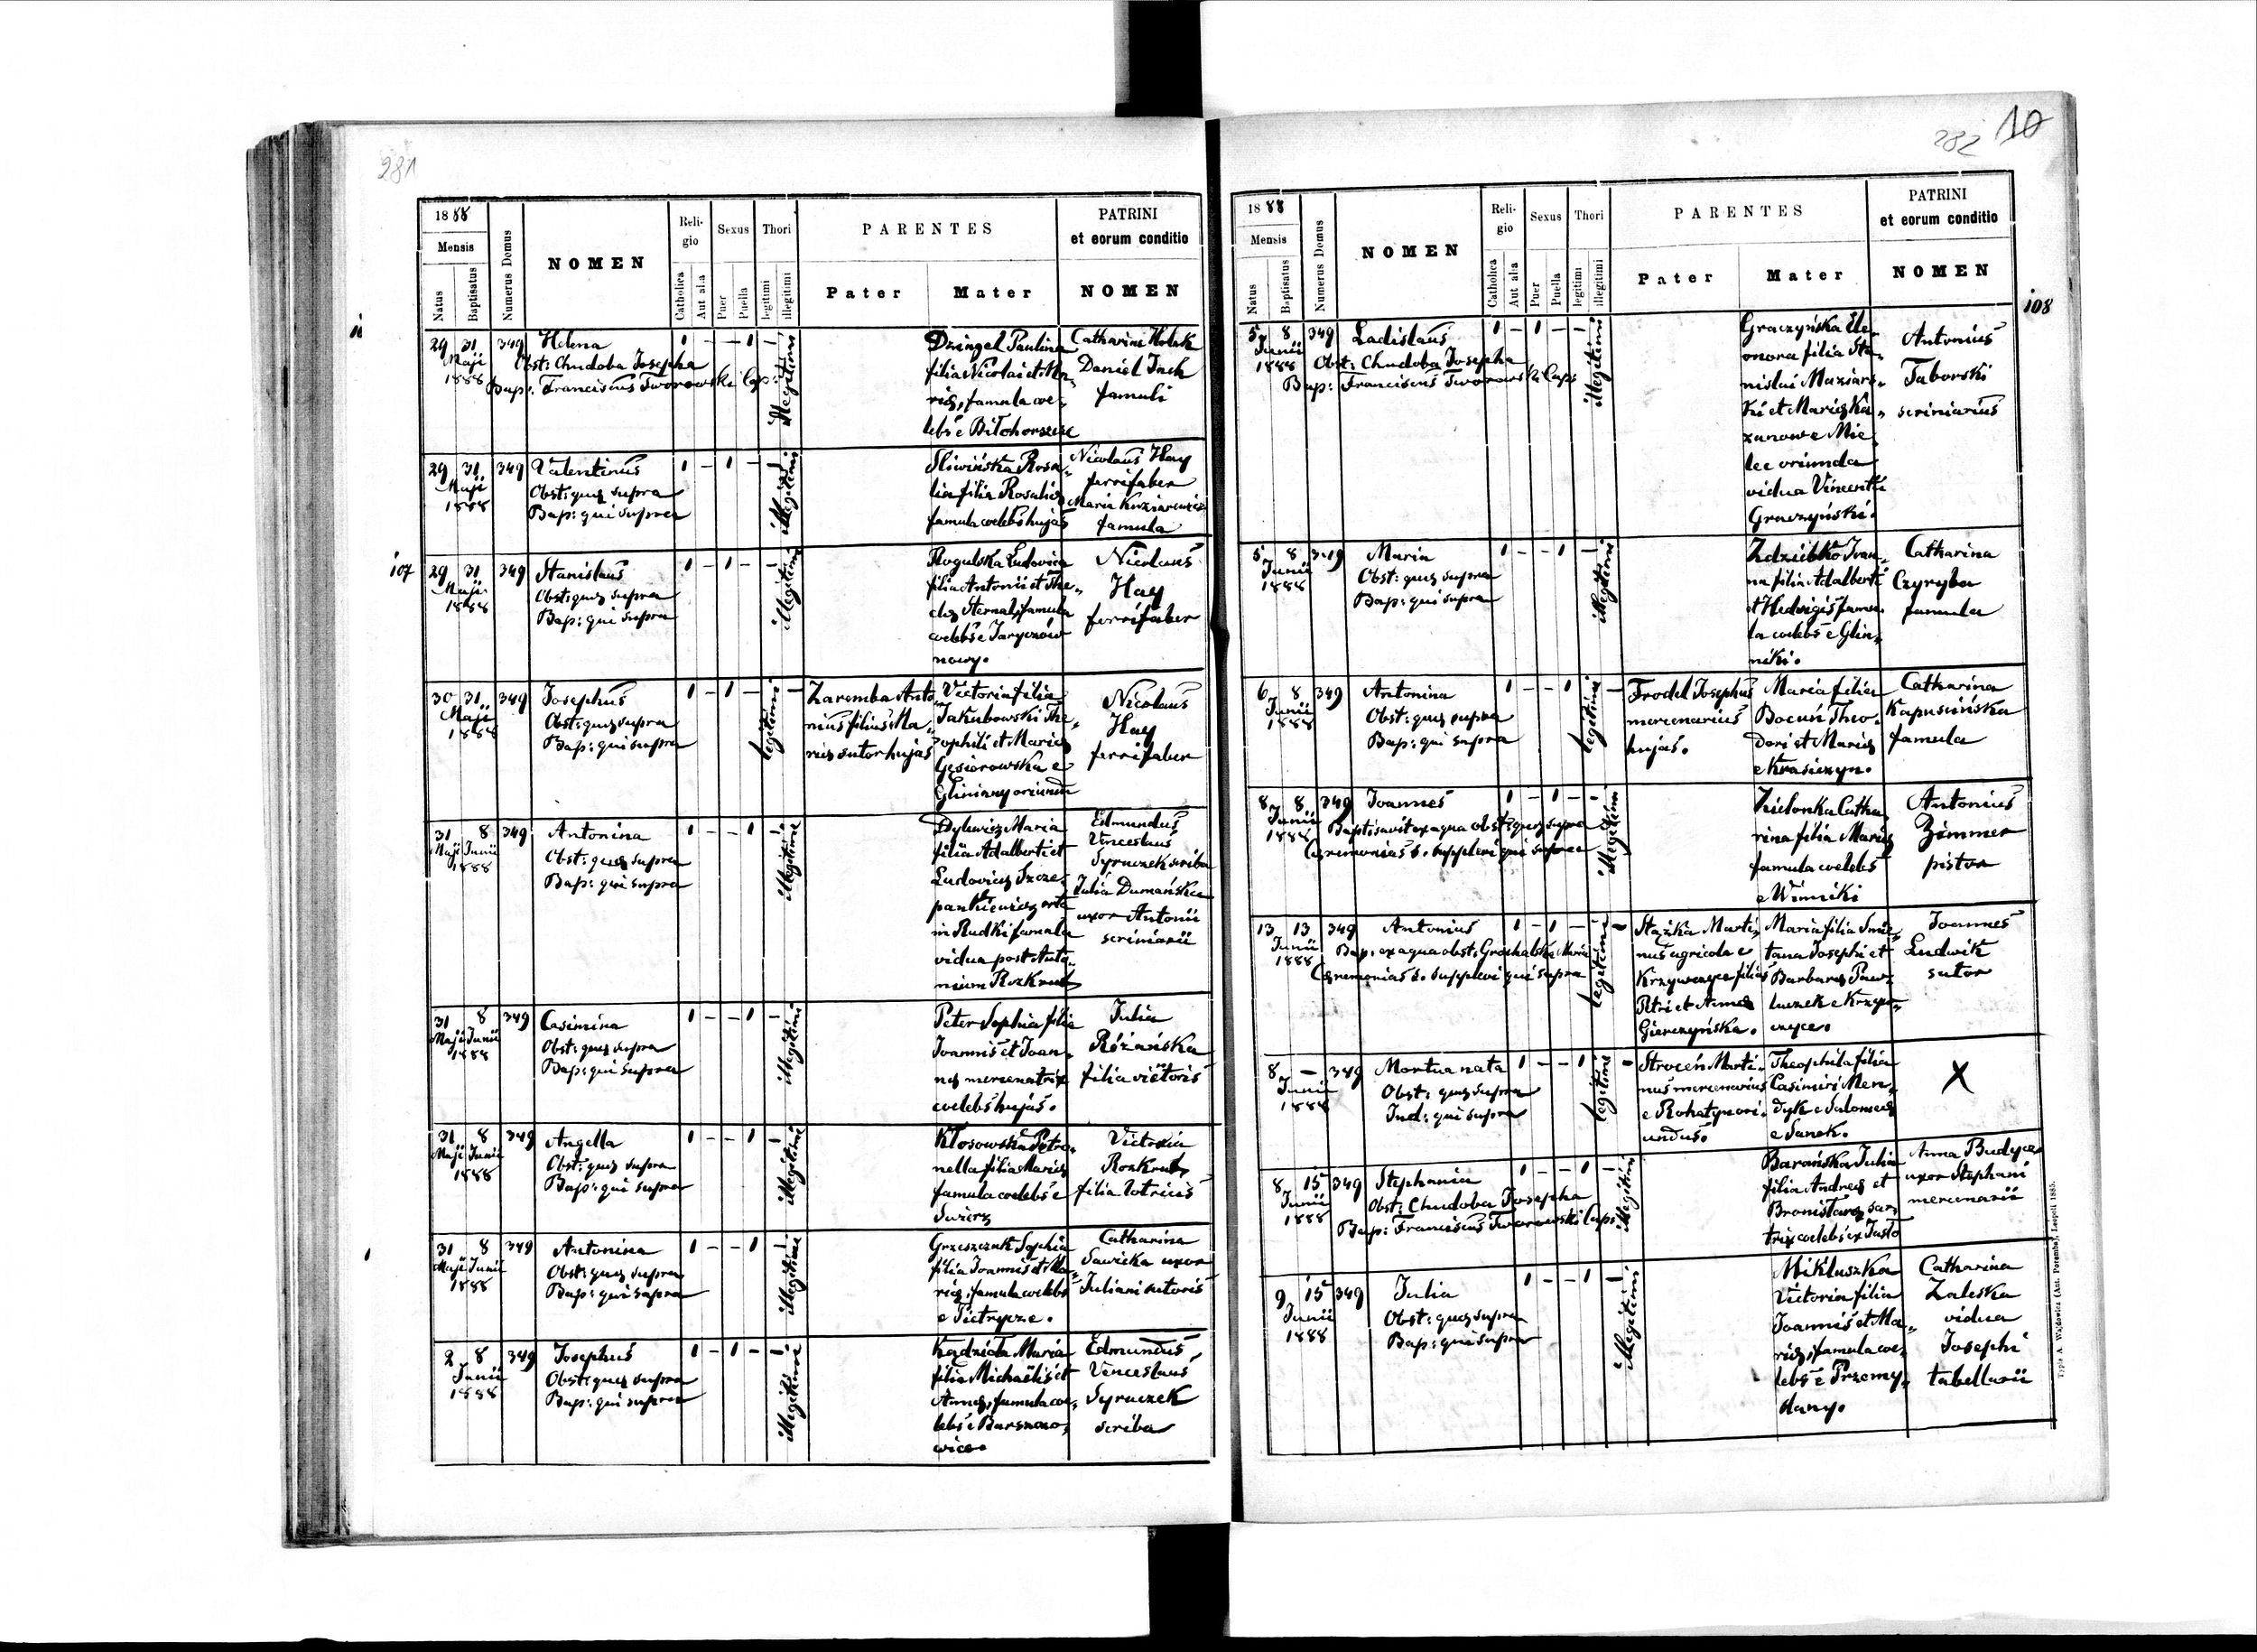 281
1888
Mensis
Natus
Baptisatus
Numerus Domus
NOMEN
Religio
Catholica
Aut alia
Sexus
Puer
Puella
Thori
legitimi
illegitimi
PARENTES
Pater
Mater
PATRINI
et eorum conditio
NOMEN
107
29 31 349 Helena
Maji
1888
Obst: Chudoba Josepha
Bap: Franciscus Tworowski Cap:
illegitimi
Dzingel Paulina
filia Nicolai et Ma„
riæ, famula cœ„
lebs e Biłohorszcze
Catharina Holak
Daniel Jach
famuli
29 31 349 Valentinus
Maji
1888
Obst: quæ supra
Bap: qui supra
illegitimi
Sliwińska Rosa„
lia filia Rosaliæ
famula cœlebs hujas
Nicolaus Hay
ferrifaber
famula
29 31 349 Stanislaus
Maji
1888
Obst: quæ supra
Bap: qui supra
illegitimi
Rogulska Ludovica
filia Antonii et The„
clæ Sternal, famula
cœlebs e Jaryczów
nowy.
Nicolaus
Hay
ferrifaber
30 31 349 Josephus
Maji
1888
Obst: quæ supra
Bap: qui supra
legitimi
Zaremba Anto„
nius filius Ma„
riæ sutor hujas
Victoria filia
Jakubowski The„
ophili et Mariæ
Gęsiorowska e
Gliniany oriunda
Nicolaus
Hay
ferrifaber
31 8 349 Antonina
Maji Junii
1888
Obst: quæ supra
Bap: qui supra
illegitimi
Maria
filia Adalberti et
Ludovicæ Szcze„
pankiewicz orta
in Rudki famula
vidua post Anto„
nium Rozkrut
Edmundus
Venceslaus
Syruczek scriba
Julia Dumańska
uxor Antonii
scriniarii
31 8 349 Casimira
Maji Junii
1888
Obst: quæ supra
Bap: qui supra
illegitimi
Peter Sophia filia
Joannis et Joan„
næ mercenatrix
cœlebs hujas.
Julia
Różańska
filia vietoris
31 8 349 Angella
Maji Junii
1888
Obst: quæ supra
Bap: qui supra
illegitimi
Kłosowska Petro„
nella filia Mariæ
famula cœlebs e
Swirz
Victoria
Rozkrut
filia lotricis
31 8 349 Antonina
Maji Junii
1888
Obst: quæ supra
Bap: qui supra
illegitimi
Grzeszczuk Sophia
filia Joannis et Ma„
riæ, famula cœlebs
e Pietrycze.
Catharina
Sawicka uxor
Juliani sutoris
2 8 349 Josephus
Junii
1888
Obst: quæ supra
Bap: qui supra
illegitimi
Kądzioła Maria
filia Michaëlis et
Annæ, famula cœ„
lebs e Barszczo„
wice.
Edmundus
Venceslaus
Syruczek
scriba
282 10
108
1888
Mensis
Natus
Baptisatus
Numerus Domus
NOMEN
Religio
Catholica
Aut alia
Sexus
Puer
Puella
Thori
legitimi
illegitimi
PARENTES
Pater
Mater
PATRINI
et eorum conditio
NOMEN
5 8 349 Ladislaus
Junii
1888
Obst: Chudoba Josepha
Bap: Franciscus Tworowski Cap:
illegitimi
Graczyńska Ele„
onora filia Sta„
nislai Maziars„
ki et Mariæ Ka„
zanow e Mie„
lec oriunda
vidua Vincentii
Graczyński.
Antonius
Taborski
scriniarius
5 8 349 Maria
Junii
1888
Obst: quæ supra
Bap: qui supra
illegitimi
Zdziebko Joan„
na filia Adalberti
et Hedvigis famu„
la cœlebs e Glin„
niki.
Catharina
Czyryba
famula
6 8 349 Antonina
Junii
1888
Obst: quæ supra
Bap: qui supra
legitimi
Trodel Josephus
mercenarius
hujas.
Maria filia
Bocuń Theo„
dori et Mariæ
e Krasiczyn.
Catharina
Kapuścińska
famula
8 8 349 Joannes
Junii
1888
Baptisavit ex aqua obst: quæ supra
Cæremonias b. supplevi qui supra
illegitimi
Zielonka Catha„
rina filia Mariæ
famula cœlebs
e Winniki
Antonius
Zimmer
pistor
13 13 349 Antonius
Junii
1888
Bap: ex aqua obst: Grochalska Maria
Cæremonias b. supplevi qui supra
legitimi
Stążka Marti„
nus agricola e
Krzywczyce filius
Petri et Annæ
Gierczyńska.
Maria filia Smie„
tana Josephi et
Barbaræ Paw„
luczek e Krzyw„
czyce.
Joannes
Ludwik
sutor
8 — 349 Mortua nata
Junii
1888
Obst: quæ supra
Ind: qui supra
legitimi
Stroceń Marti„
nus mercenarius
e Rohatyn ori„
undus.
Theophila filia
Casimiri Men„
dyk e Salomeæ
e Sanok.
X
8 15 349 Stephania
Junii
1888
Obst: Chudoba Josepha
Bap: Franciscus Tworowski Cap:
illegitimi
Barańska Julia
filia Andreæ et
Bronislavæ sar„
trix cœlebs ex Jasło
Anna Budyca
uxor Stephani
mercenarii
9 15 349 Julia
Junii
1888
Obst: quæ supra
Bap: qui supra
illegitimi
Mikluszka
Victoria filia
Joannis et Ma„
riæ, famula cœ„
lebs e Przemy„
slany.
Catharina
Zaleska
vidua
Josephi
tabellarii
Typis A. Wajdowicz (Ant. Poremba), Leopoli 1885.